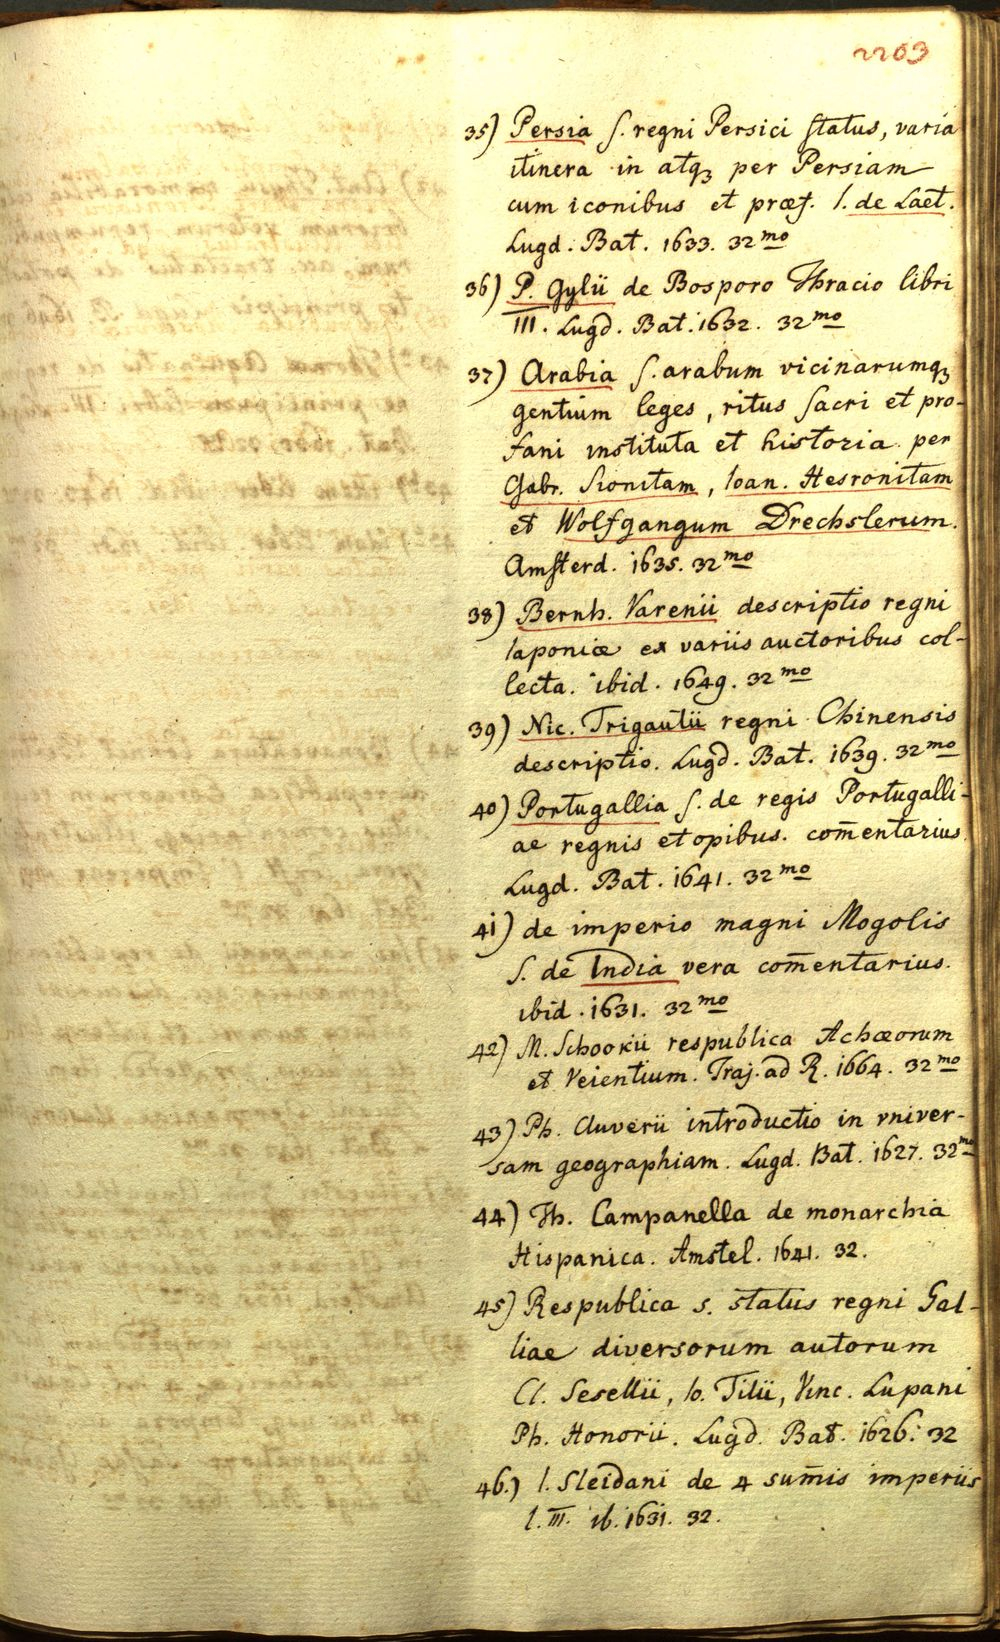 2203
35) Persia s. regni Persici status, varia
itinera in atqꝫ per Persiam
cum iconibus et præf. I. de Laet.
Lugd. Bat. 1633. 32mo
36) P. Gylii de Bosporo Thracio libri
III. Lugd. Bat. 1632. 32mo
37) Arabia s. arabum vicinarumqꝫ
gentium leges, ritus sacri et pro-
fani instituta et historia per
Gabr. Sionitam, Ioan. Hesronitam
et Wolfgangum Drechslerum.
Amsterd. 1635. 32mo
38) Bernh. Varenii descriptio regni
Iaponiæ ex variis auctoribus col-
lecta. ibid. 1649. 32mo
39) Nic. Trigautii regni Chinensis
descriptio. Lugd. Bat. 1639. 32mo
40) Portugallia s. de regis Portugalli-
ae regnis et opibus. com̄entarius
Lugd. Bat. 1641. 32mo
41) de imperio magni Mogolis
s. de India vera com̄entarius.
ibid. 1631. 32mo
42) M. Schookii respublica Achæorum
et Veientium. Traj. ad R. 1664. 32mo
43) Ph. Cluverii introductio in vniver-
sam geographiam. Lugd. Bat. 1627. 32mo
44) Th. Campanella de monarchia
Hispanica. Amstel. 1641. 32.
45) Respublica s. status regni Gal-
liae diversorum autorum
Cl. Sesellii, Io. Tilii, Vinc. Lupani
Ph. Honorii. Lugd. Bat. 1626. 32
46.) I. Sleidani de 4 sum̄is imperiis
l. III. ib. 1631. 32.